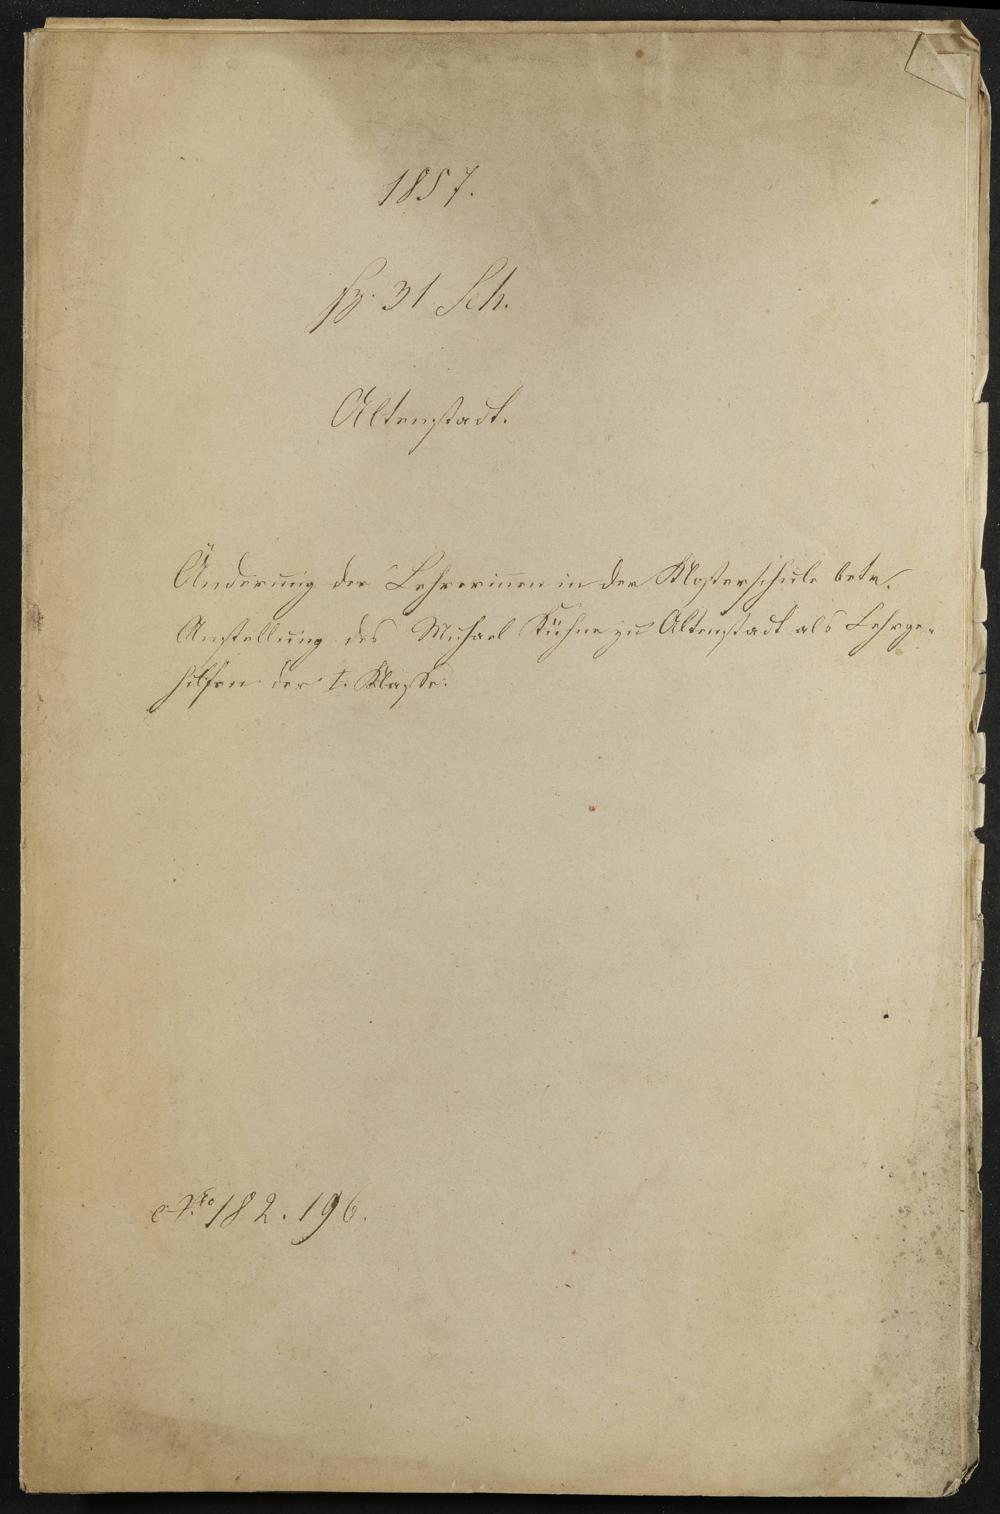 1857.
Fz. 31 Sch.
Altenstadt.
Änderung der Lehrerinen in der Klosterschule betr.
Anstellung des Michael Kühne zu Altenstadt als Lehrge-
hilfen der I. Klasse.
Nro 182. 196.